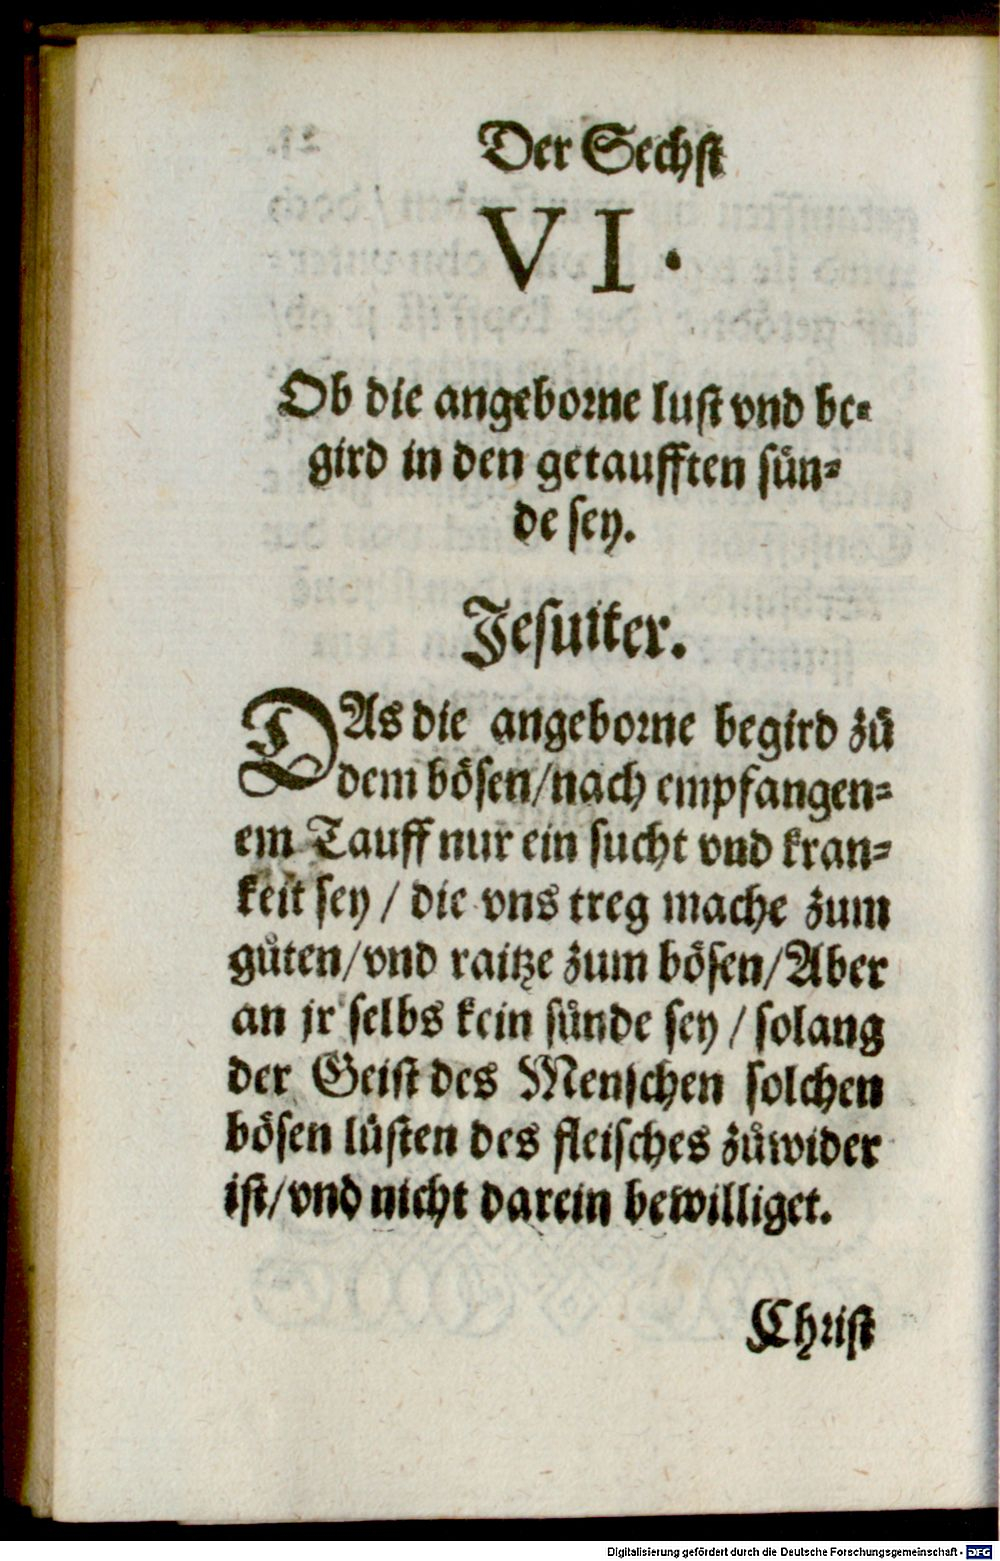 Der Sechst
VI.
Ob die angeborne lust vnd be-
gird in den getaufften sün-
de sey.
Jesuiter.
DAs die angeborne begird zů
dem bösen/nach empfangen-
em Tauff nur ein sucht vnd kran-
keit sey / die vns treg mache zum
gůten/vnd raitze zum bösen/Aber
an jr selbs kein sünde sey / solang
der Geist des Menschen solchen
bösen lüsten des fleisches zůwider
ist/vnd nicht darein bewilliget.
Christ
Digitalisierung gefördert durch die Deutsche Forschungsgemeinschaft - DFG